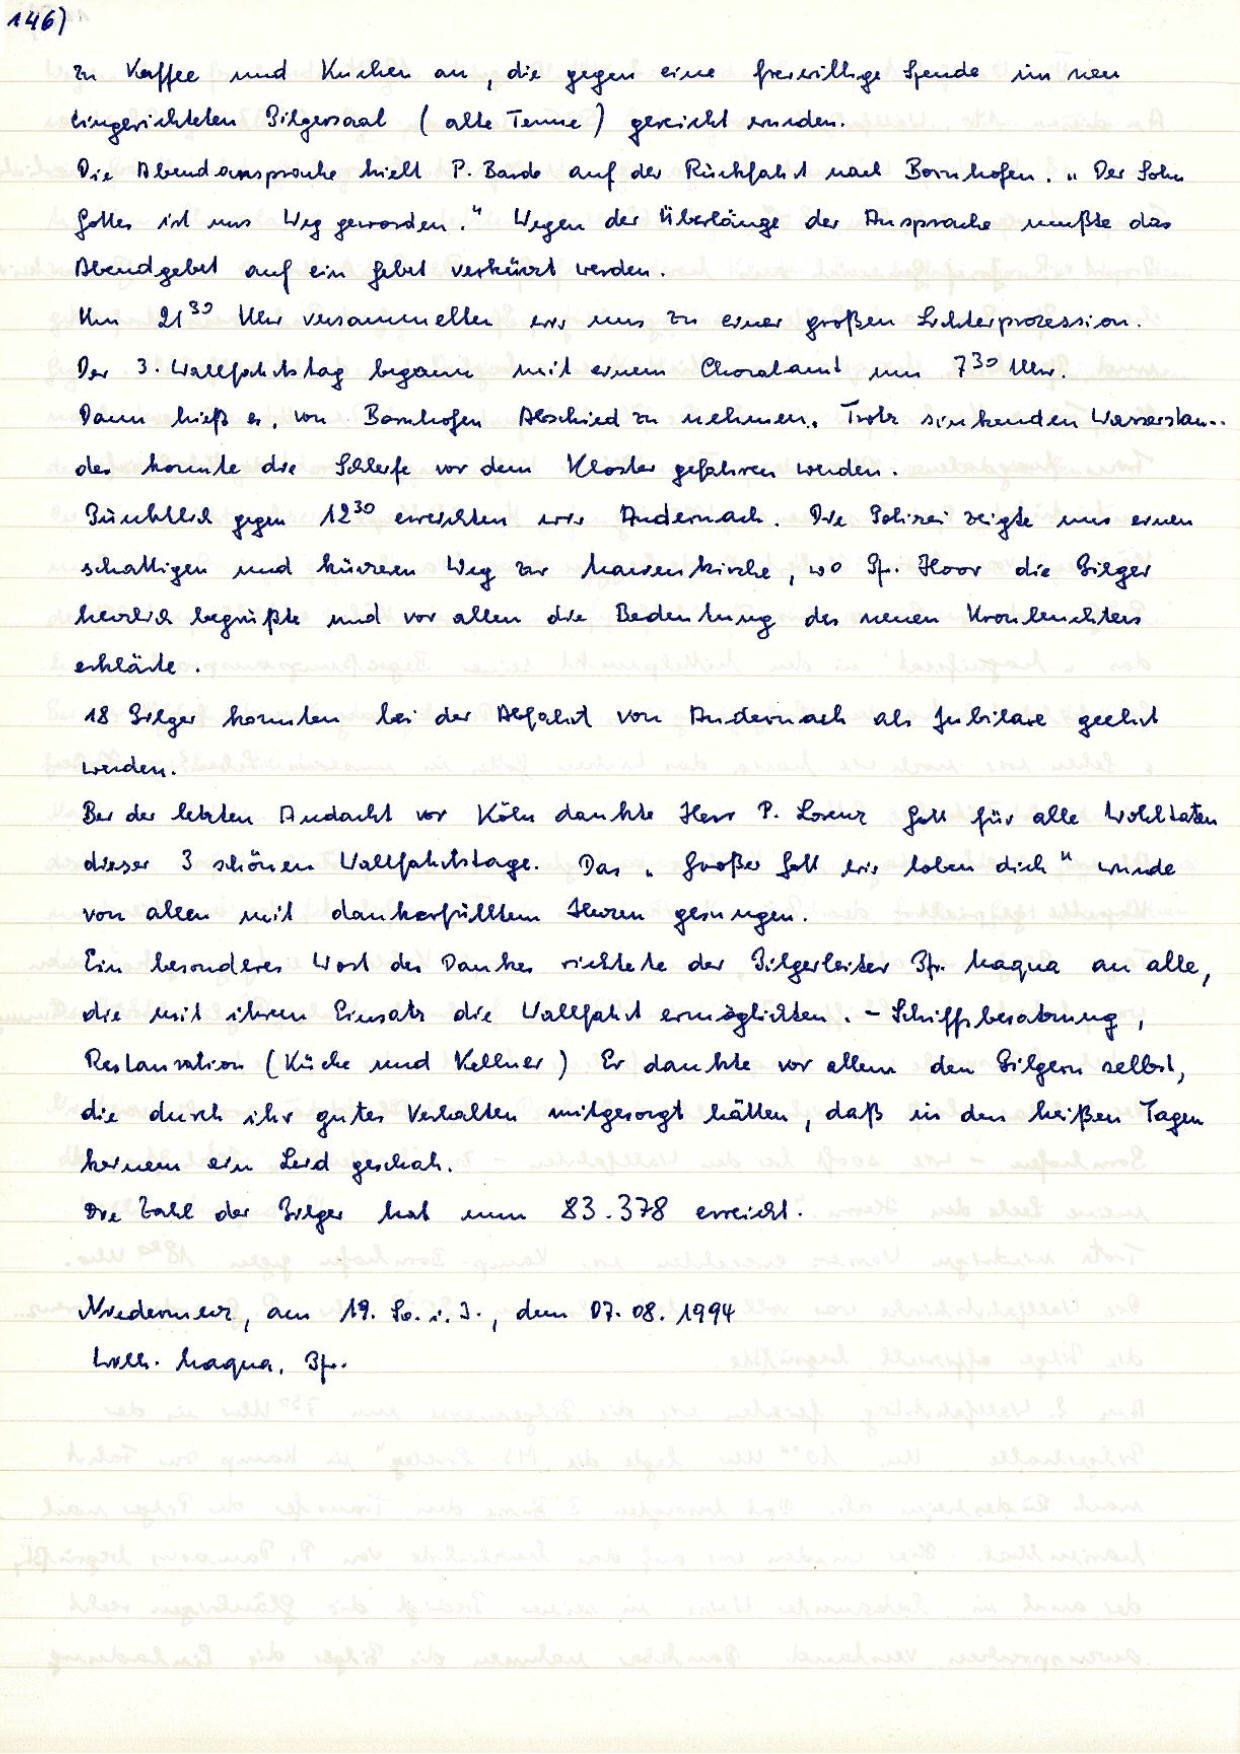 146)
zu Kaffee und Kuchen an, die gegen eine freiwillige Spende im neu
eingerichteten Pilgersaal (alte Tenne) gereicht wurden.
Die Abendansprache hielt P. Bardo auf der Rückfahrt nach Bornhofen. „Der Sohn
Gottes ist uns Weg geworden." Wegen der Überlänge der Ansprache mußte das
Abendgebet auf ein Gebet verkürzt werden.
Um 21³⁰ Uhr versammelten wir uns zu einer großen Lichterprozession.
Der 3. Wallfahrtstag begann mit einem Choralamt um 7³⁰ Uhr.
Dann hieß es, von Bornhofen Abschied zu nehmen. Trotz sinkenden Wasserstan-
des konnte die Schleife vor dem Kloster gefahren werden.
Pünktlich gegen 12³⁰ erreichten wir Andernach. Die Polizei zeigte uns einen
schattigen und kürzeren Weg zur Marienkirche, wo Pf. Hoor die Pilger
herzlich begrüßte und vor allen die Bedeutung des neuen Kronleuchters
erklärte.
18 Pilger konnten bei der Abfahrt von Andernach als Jubilare geehrt
werden.
Bei der letzten Andacht vor Köln dankte Herr P. Lorenz Gott für alle Wohltaten
dieser 3 schönen Wallfahrtstage. Das „Großer Gott wir loben dich" wurde
von allen mit dankerfülltem Herzen gesungen.
Ein besonderes Wort des Dankes richtete der Pilgerleiter Pfr. Maqua an alle,
die mit ihrem Einsatz die Wallfahrt ermöglichten. - Schiffsbesatzung,
Restauration (Küche und Kellner) Er dankte vor allem den Pilgern selbst,
die durch ihr gutes Verhalten mitgesorgt hätten, daß in den heißen Tagen
keinem ein Leid geschah.
Die Zahl der Pilger hat nun 83.378 erreicht.
Niedermerz, am 19. So. i. J., dem 07. 08. 1994
Wilh. Maqua, Pfr.